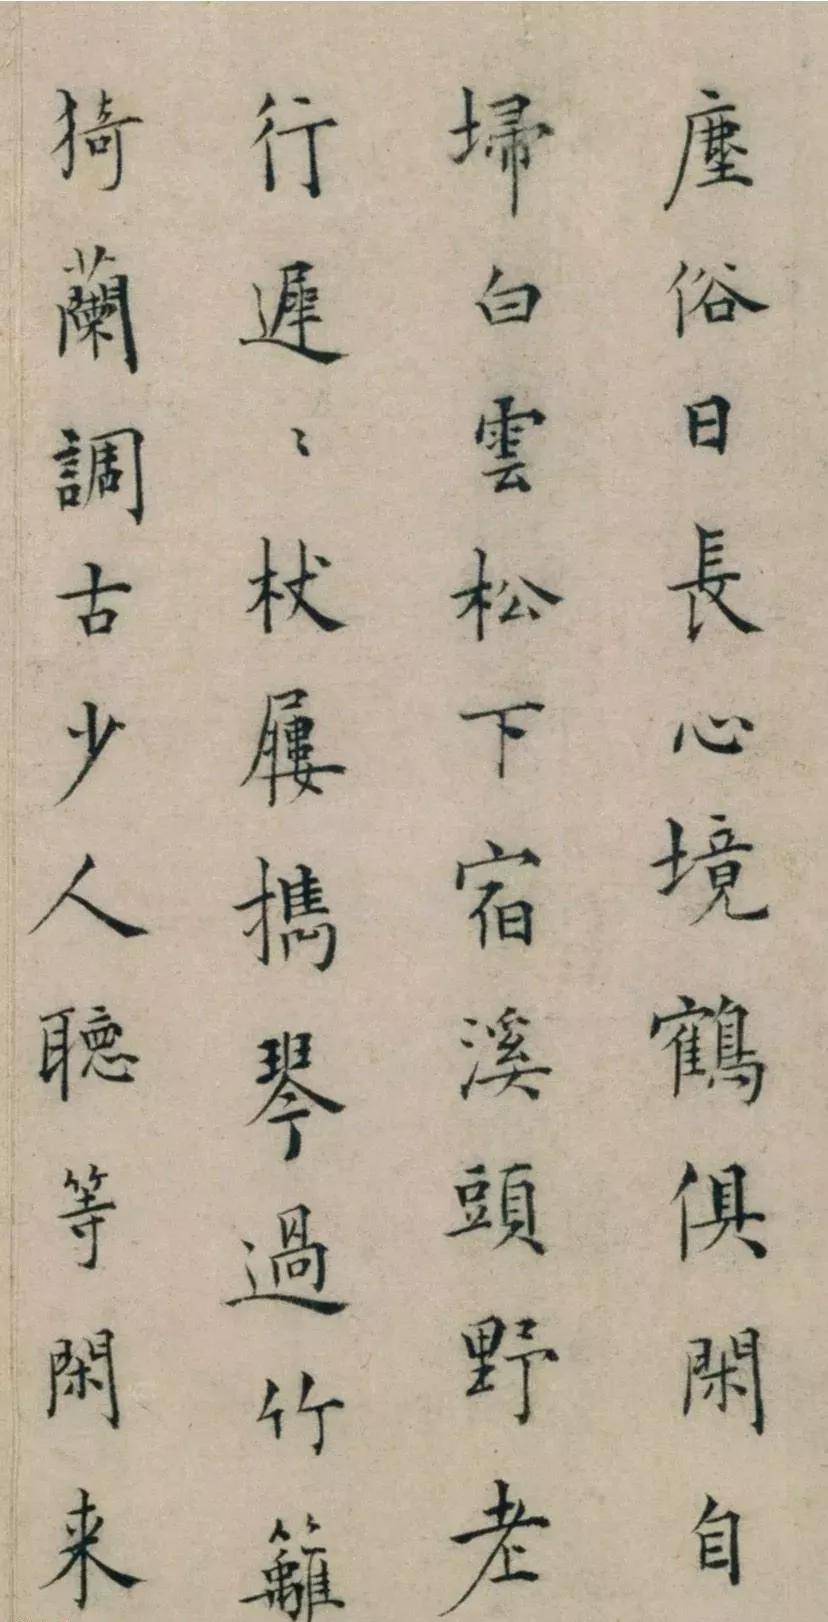 塵俗日長心境鶴俱閑自
埽白雲松下宿溪頭野老
行遲〻杖屨攜琴過竹籬
猗蘭調古少人聽等閑来